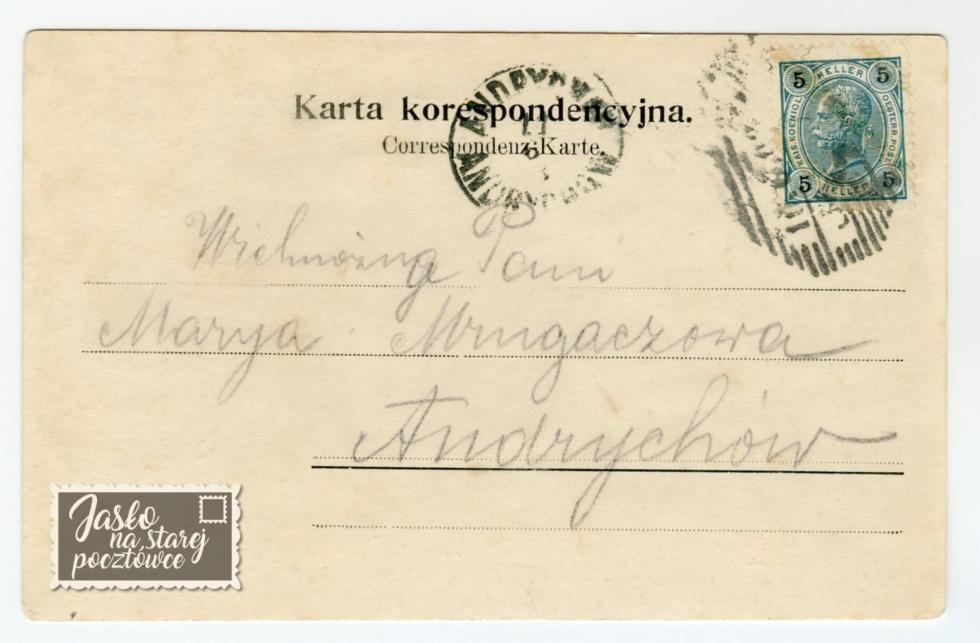 Karta korespondencyjna.
Correspondenz-Karte.
5 HELLER 5
KAIS. KOENIGL. OESTERR. POST
5 HELLER 5
Wielmożna Pani
Marya Mrugaczowa
Andrychów
Jasło
na starej
pocztówce